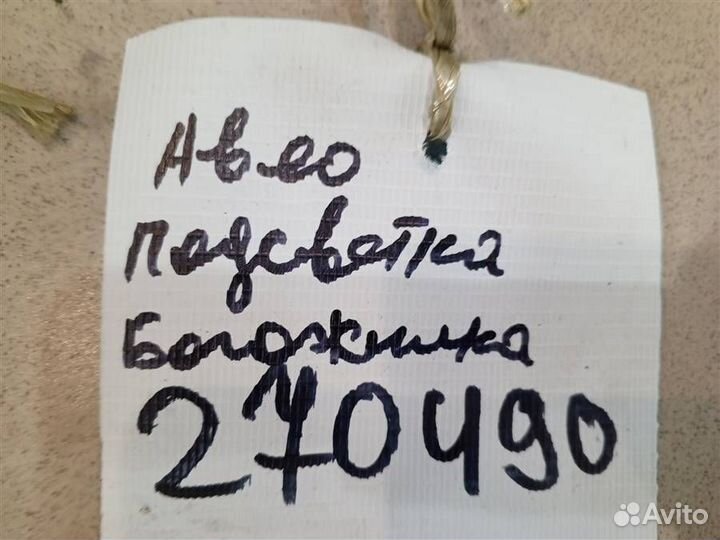 Авео
подсветка
Богожника
270490
Avito